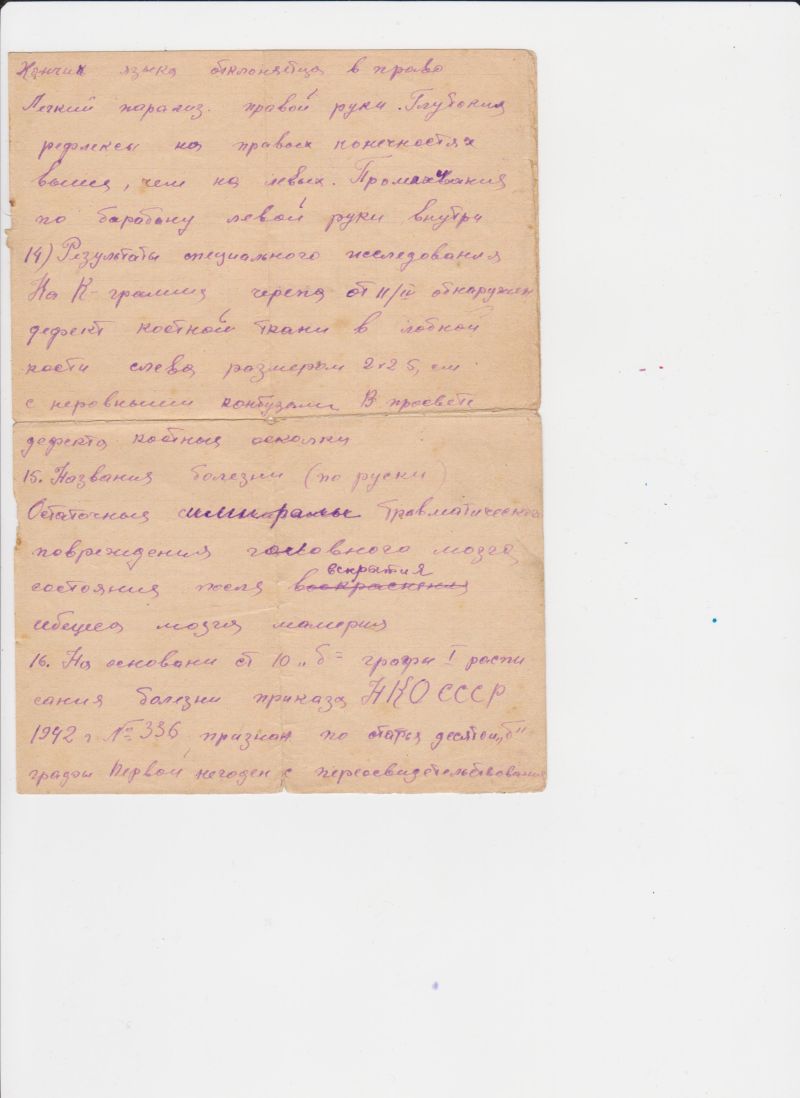 Кончик языка отклоняйца в право
Легкий парализ. правой руки. Глубокия
рефлексы на правых конечностях
выше, чем на левых. Промахивания
по барабану левой руки внутри
14) Результаты специального исследования
На R-грамме черепа от 11/IV обнаружен
дефект костной ткани в лобной
кости слева размером 2х2 5, см
с неровными контузами В просвете
дефекта костныя осколки
15. Названия болезни (по руски)
Остаточныя травматического
повреждения головного мозга
состояния после вскрытия
мозга
16. На основани ст 10 „б" графы I распи
сания болезни приказа НКО СССР
1942 г № 336 признан по статья десятой „б"
графы первой негоден с переосвидетельствования